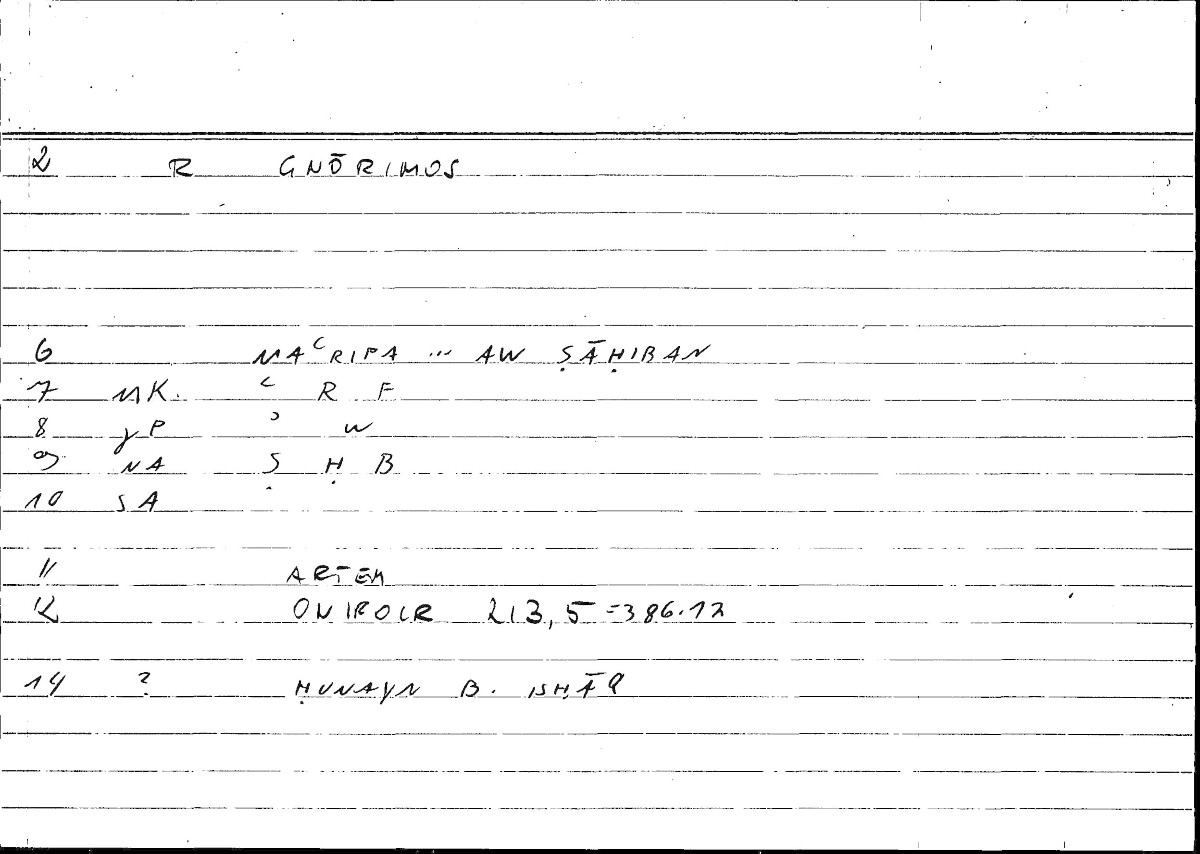 2 R GNŌRIMOS
6 MAʿRIFA ... AW ṢĀḤIBAN
7 MK. ʿ R F
8 yP ʾ W
9 NA Ṣ Ḥ B
10 SA
11 ARTEM
12 ONIROCR 213,5 =386.12
14 ? ḤUNAYN B. ISḤĀQ